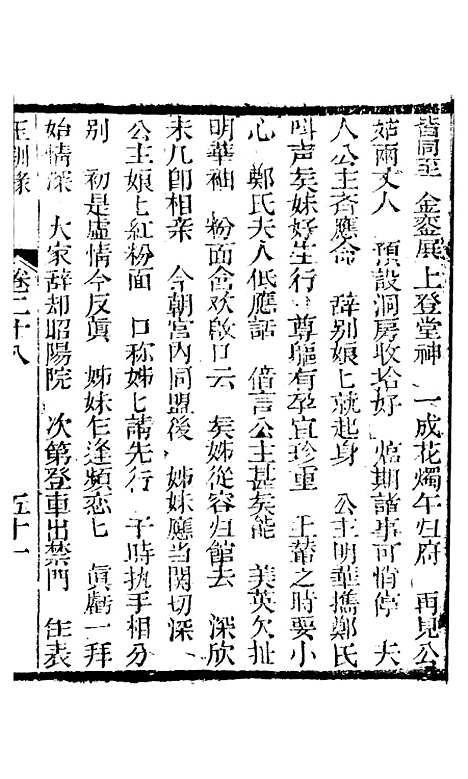 皆同至　金銮展上登堂神　一成花燭午归府　再見公
姑兩丈人　預設洞房收拾好　媋期諸事可悄停　夫
人公主斉應命　辞别娘匕就起身　公主明華攜鄭氏
叫声矣妹好生行　尊軀有孕宜珍重　上輦之時要小
心　鄭氏夫人低應話　倍言公主甚矣能　美英欠扯
明華袖　粉面含欢啟口云　矣姊從容归館去　深欣
未几即相亲　今朝宮內同盟後　姊妹應当関切深
公主娘匕紅粉面　口称姊匕請先行　于時执手相分
别　初是虛情今反眞　姊妹乍逢頻恋匕　眞虧一拜
始情深　大家辞却昭陽院　次第登車出禁門　年表
玉釧缘　卷二十八　五十一